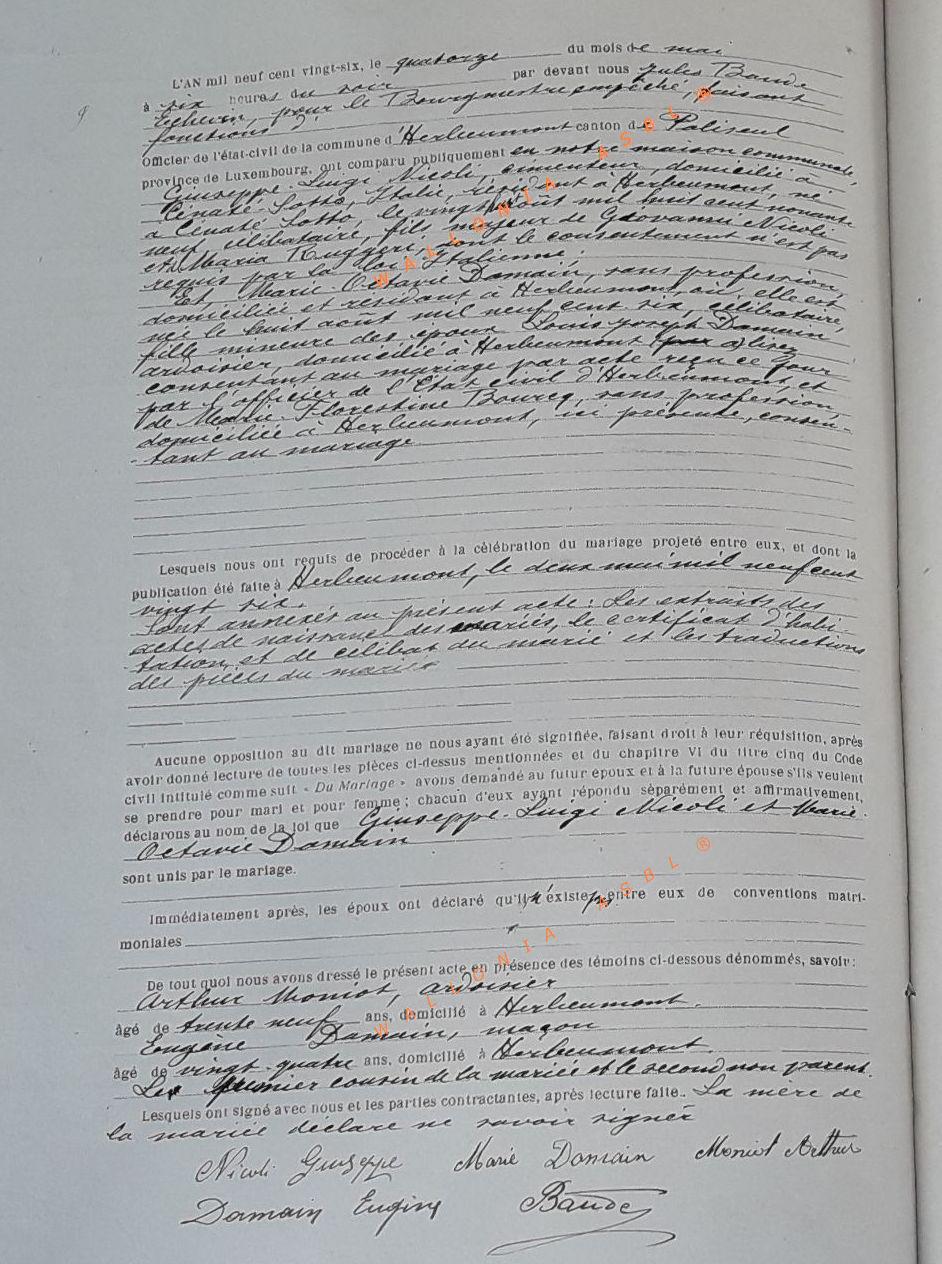 9
L'AN mil neuf cent vingt-six, le quatorze du mois de mai
à six heures du soir par devant nous Jules Baude
Echevin, pour le Bourgmestre empêché, faisant
fonctions d'
officier de l'état-civil de la commune d'Herbeumont canton de Paliseul
province de Luxembourg, ont comparu publiquement en notre maison communale,
Giuseppe-Luigi Nicoli, cimentier, domicilié à
Cenate-Sotto, Italie, résidant à Herbeumont, né
à Cenate Sotto, le vingt août mil huit cent nonante
neuf, célibataire, fils majeur de Giovanni Nicoli
et Maria Ruggeri, dont le consentement n'est pas
requis par la loi Italienne;
Et, Marie-Octavie Damain, sans profession,
domiciliée et résidant à Herbeumont, où elle est
née le huit août mil neuf cent six, célibataire,
fille mineure des époux Louis Joseph Damain
ardoisier, domicilié à Herbeumont
consentant au mariage par acte reçu ce jour
par l'officier de l'Etat civil d'Herbeumont, et
de Marie-Florestine Bourcq, sans profession,
domiciliée à Herbeumont, ici présente, consen-
tant au mariage
Lesquels nous ont requis de procéder à la célébration du mariage projeté entre eux, et dont la
publication été faite à Herbeumont, le deux mai mil neuf cent
vingt six.
Sont annexés au présent acte: Les extraits des
actes de naissance des mariés, le certificat d'habi-
tation et de célibat du marié et les traductions
des pièces du marié
Aucune opposition au dit mariage ne nous ayant été signifiée, faisant droit à leur réquisition, après
avoir donné lecture de toutes les pièces ci-dessus mentionnées et du chapitre VI du titre cinq du Code
civil intitulé comme suit « Du Mariage » avons demandé au futur époux et à la future épouse s'ils veulent
se prendre pour mari et pour femme; chacun d'eux ayant répondu séparément et affirmativement,
déclarons au nom de la loi que Giuseppe-Luigi Nicoli et Marie-
Octavie Damain
sont unis par le mariage.
Immédiatement après, les époux ont déclaré qu'il n'existe pas entre eux de conventions matri-
moniales
De tout quoi nous avons dressé le présent acte en présence des témoins ci-dessous dénommés, savoir:
Arthur Moniot, ardoisier
âgé de trente neuf ans, domicilié à Herbeumont.
Eugène Damain, maçon
âgé de vingt-quatre ans, domicilié à Herbeumont.
Le premier cousin de la mariée et le second non parent.
Lesquels ont signé avec nous et les parties contractantes, après lecture faite. La mère de
la mariée déclare ne savoir signer
Nicoli Giuseppe Marie Damain Moniot Arthur
Damain Eugène Baude
WALLONIA ASBL ®
WALLONIA ASBL ®